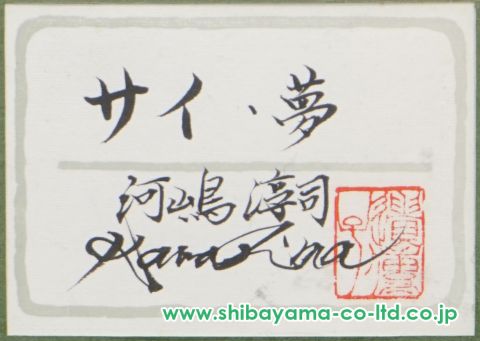 サイ・夢
河嶋淳司
www.shibayama-co-ltd.co.jp